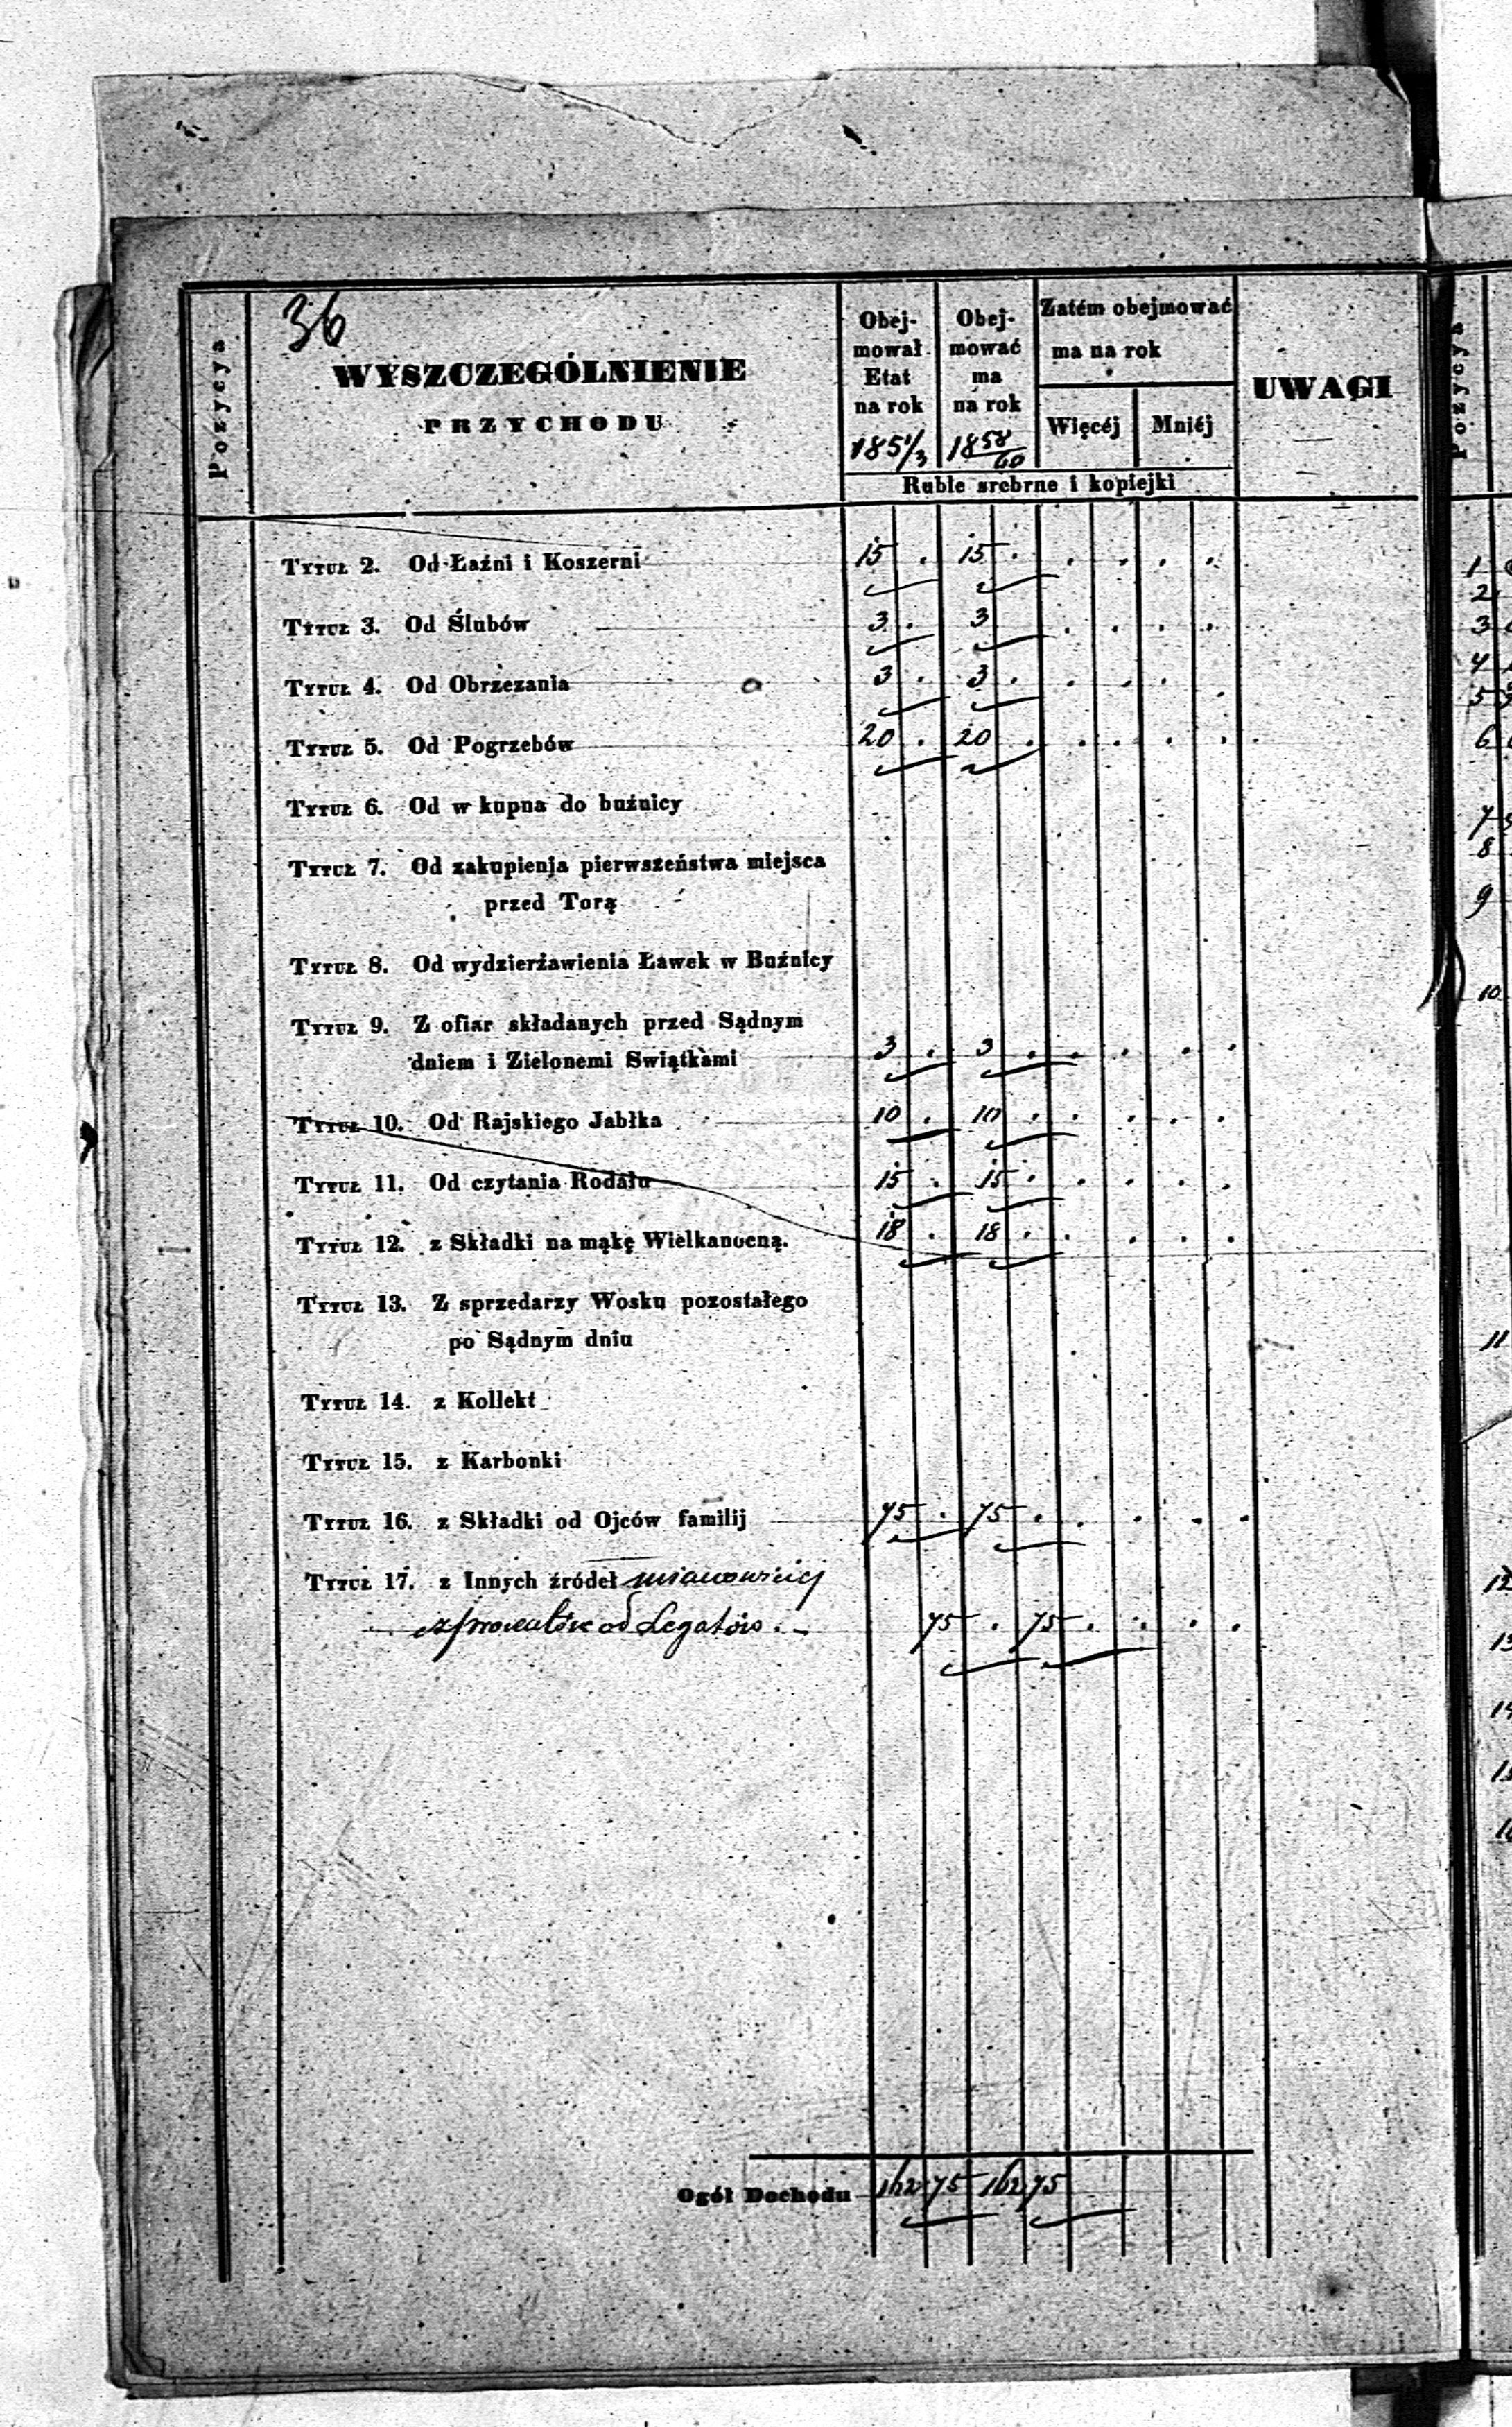 36
Pozycya
WYSZCZEGÓLNIENIE
PRZYCHODU
Obej-
mował
Etat
na rok
1851/3
Obej-
mować
ma
na rok
1858/60
Zatém obejmować
ma na rok
Więcéj
Mniéj
UWAGI
Ruble srebrne i kopiejki
Tytuł 2. Od Łaźni i Koszerni 15 . 15 . . . . .
Tytuł 3. Od Ślubów 3 . 3 . . . .
Tytuł 4. Od Obrzezania 3 . 3 . . . . .
Tytuł 5. Od Pogrzebów 20 . 20 . . . . .
Tytuł 6. Od w kupna do buźnicy
Tytuł 7. Od zakupienia pierwszeństwa miejsca
przed Torą
Tytuł 8. Od wydzierżawienia Ławek w Buźnicy
Tytuł 9. Z ofiar składanych przed Sądnym
dniem i Zielonemi Swiątkami 3 . 3 . . . . .
Tytuł 10. Od Rajskiego Jabłka 10 . 10 . . . . .
Tytuł 11. Od czytania Rodału 15 . 15 . . . . .
Tytuł 12. z Składki na mąkę Wielkanocną. 18 . 18 . . . . .
Tytuł 13. Z sprzedarzy Wosku pozostałego
po Sądnym dniu
Tytuł 14. z Kollekt
Tytuł 15. z Karbonki
Tytuł 16. z Składki od Ojców familij 75 . 75 . . . . .
Tytuł 17. z Innych źródeł mianowiciej
z procentów od Legatów . 75 . 75 . . . .
Ogół Dochodu 162 75 162 75
Pozycya
1
2
3
4
5
6
7
8
9
10
11